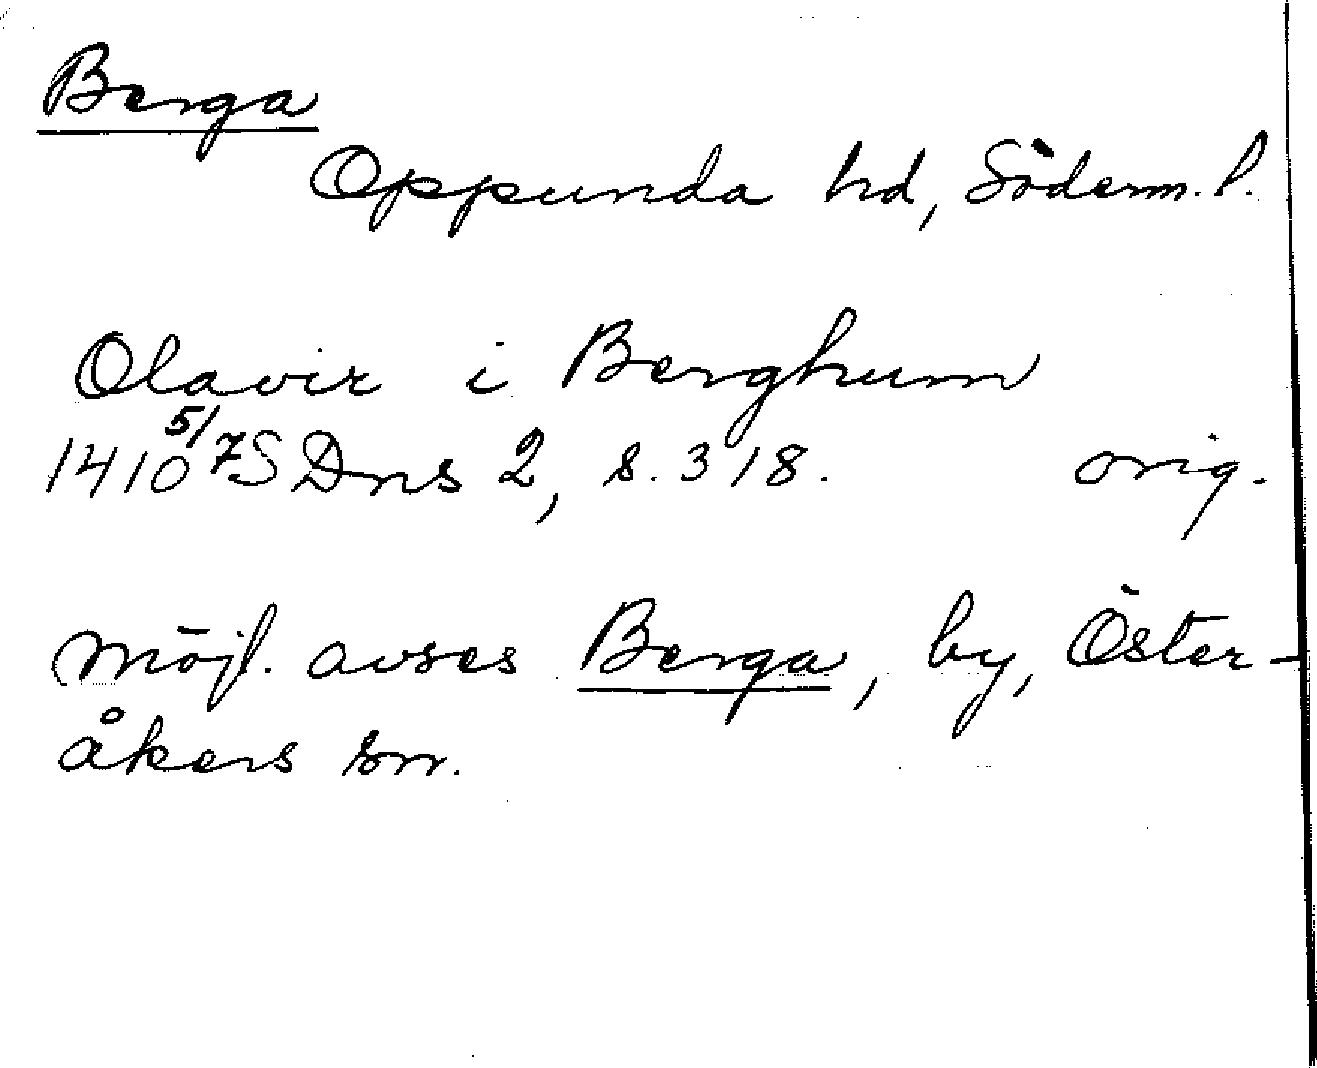 Berga
Oppunda hd, Söderm. l.
Olavir i Berghum
1410 5/7 SDns 2, s. 318. orig.
Möjl. avses Berga, by, Öster-
åkers sn.